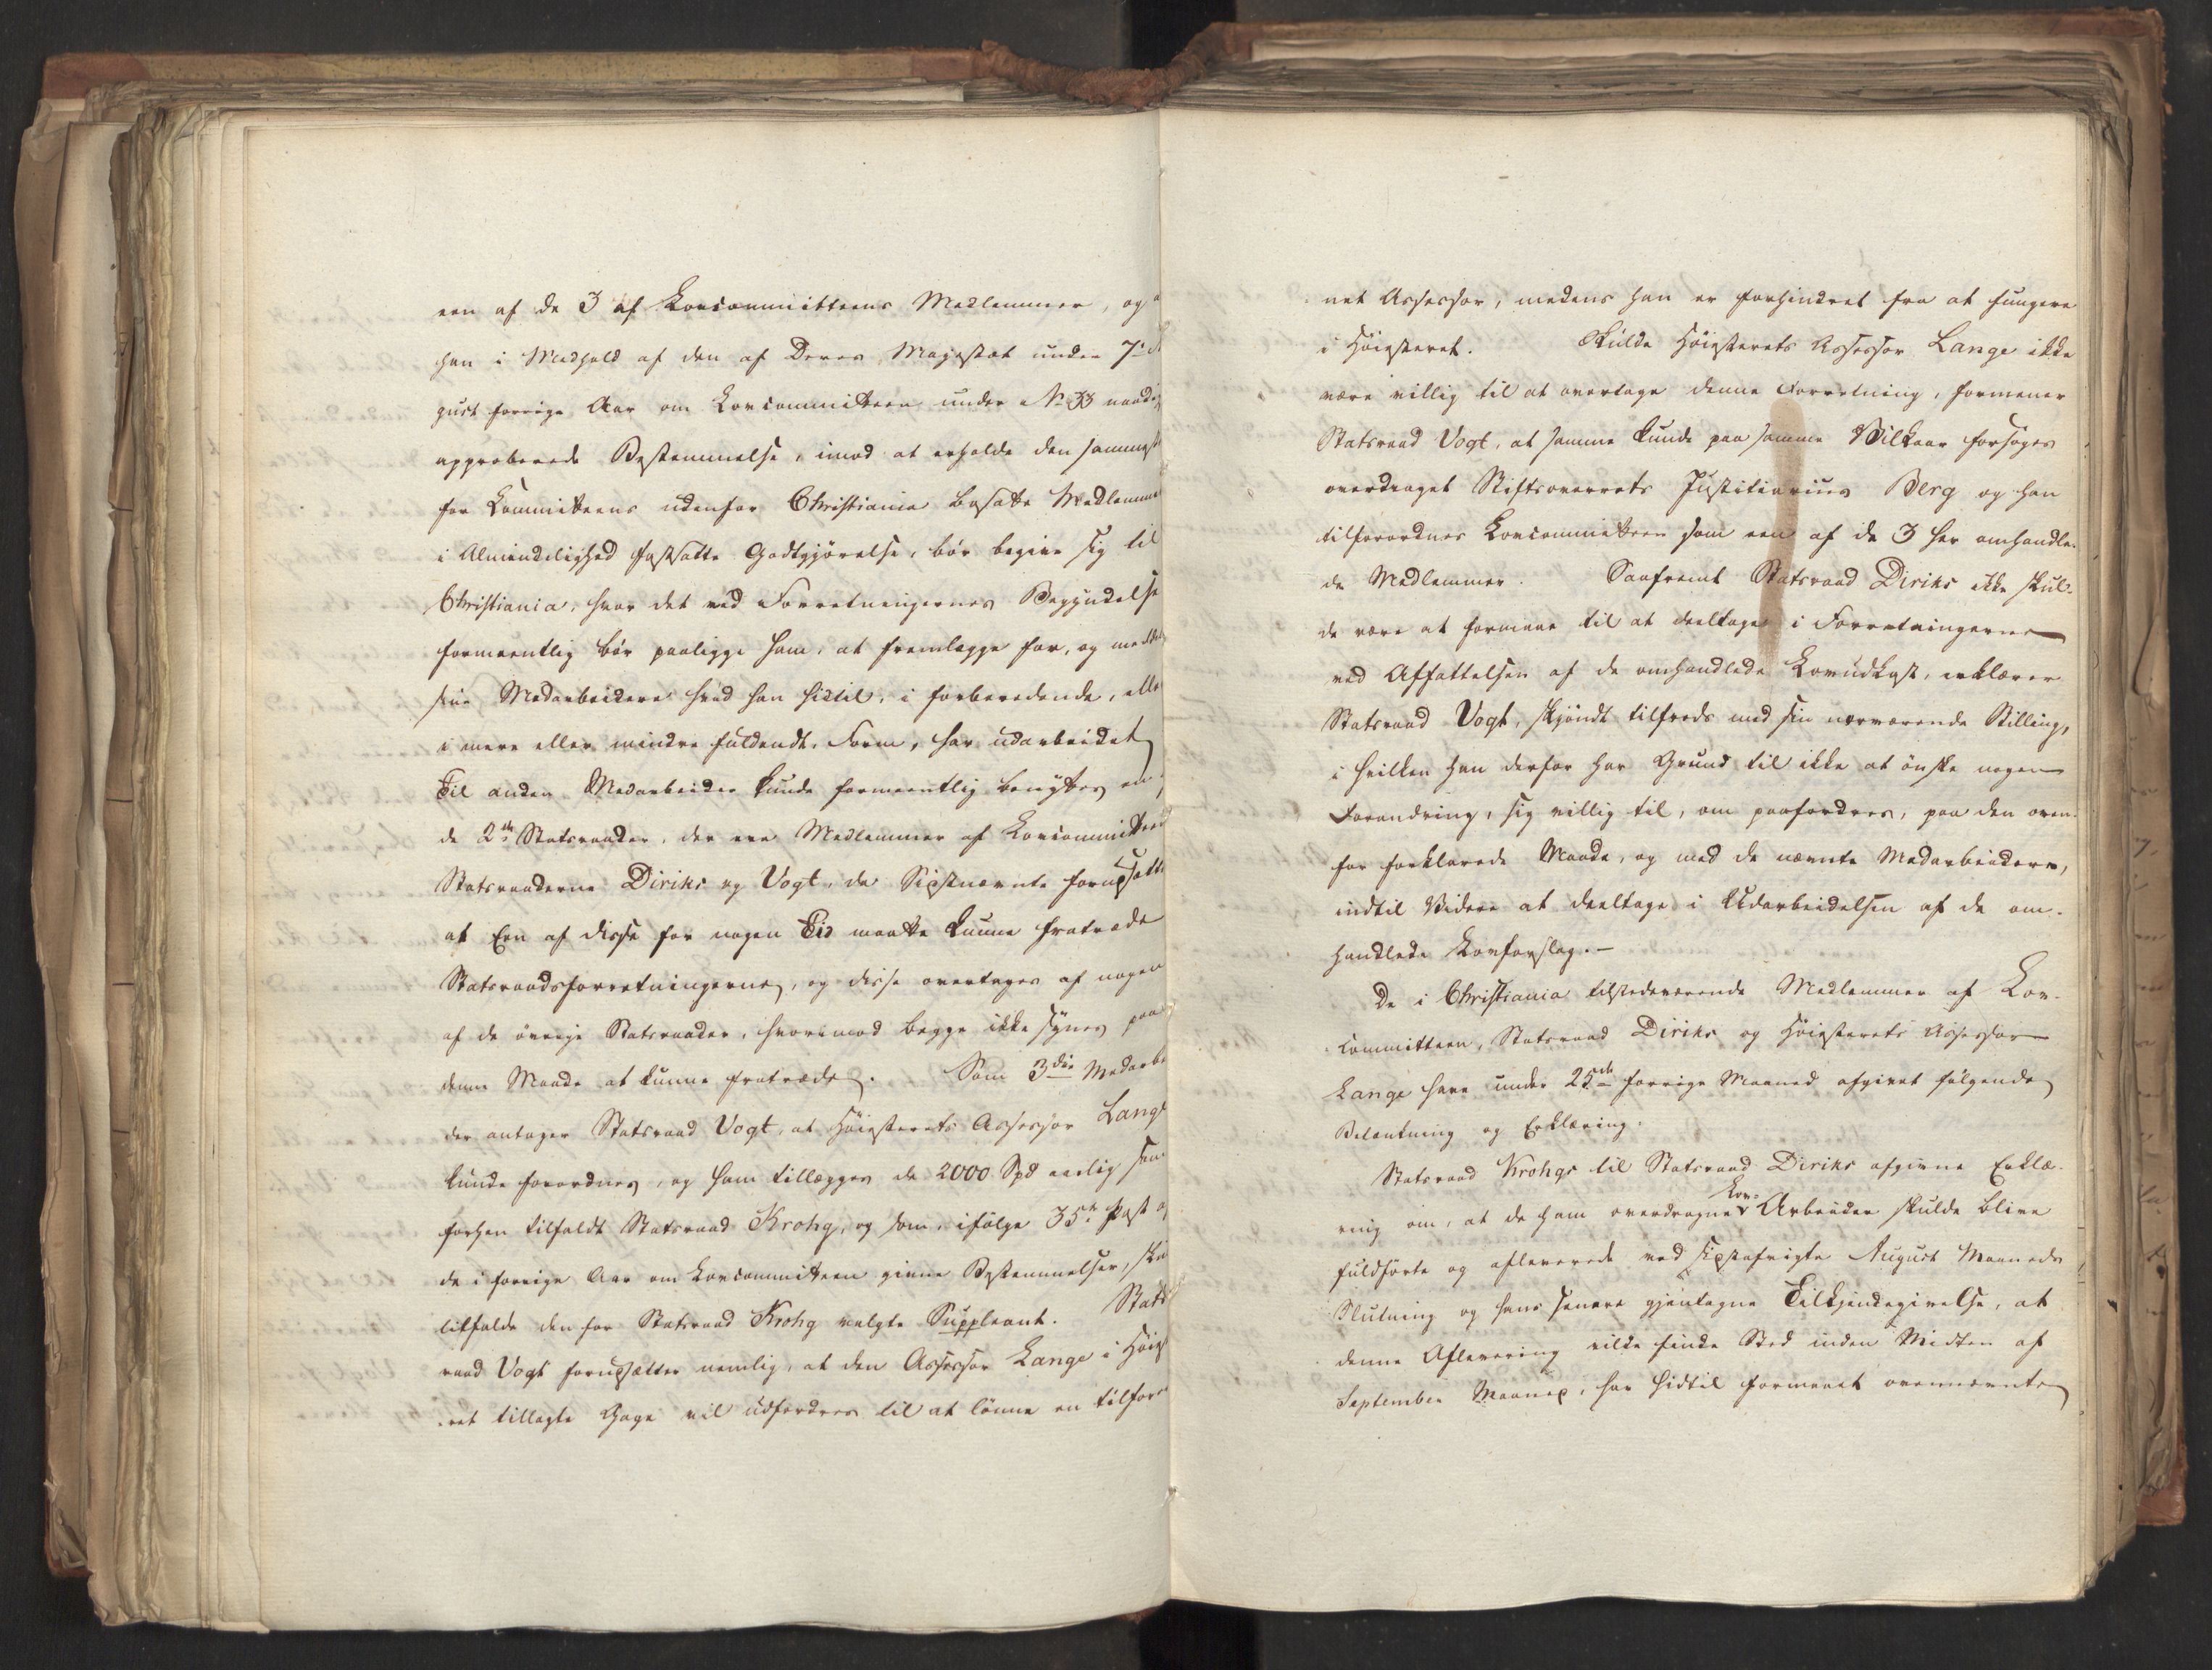 een af de 3 af Lovcommitteens Medlemmer, og
han i Medhold af den af Deres Majestæt under 7de
gust forrige Aar om Lovcommitteen under No 33 naadig
approberede Bestemmelse, imod at erholde den sammest
for Committeens udenfor Christiania bosatte Medlemme
i Almindelighed fastsatte Godtgjörelse, bör begive sig til
Christiania, hvor det ved Forretningernes Begyndelse
formeentlig bör paaligge ham, at fremlægge for, og meddele
sine Medarbeidere hvad han hidtil, i forberedende, eller
i mere eller mindre fuldendt, Form, har udarbeidet
Til anden Medarbeider kunde formeentlig benyttes en
de 2de Statsraader, der ere Medlemmer af Lovcommitteen
Statsraaderne Diriks og Vogt, da Sidstnævnte forudsætte
at Een af disse for nogen Tid maatte kunne fratræde
Statsraadsforretningerne, og disse overtages af nogen
af de övrige Statsraader, hvorimod begge ikke synes paa
denne Maade at kunne fratræde. Som 3die Medarbei
der antager Statsraad Vogt, at Höiesterets Assessor Lange
kunde forordnes, og ham tillægges de 2000 Spd aarlig som
forhen tilfaldt Statsraad Krohg, og som, ifölge 35te Post af
de i forrige Aar om Lovcommitteen givne Bestemmelser, skul
tilfalde den for Statsraad Krohg valgte Suppleant. Stats
raad Vogt forudsætter nemlig, at den Assessor Lange i Höieste
ret tillagte Gage vil udfordres til at lönne en tilfor
net Assessor, medens han er forhindret fra at fungere
i Höiesteret. Skulde Höiesterets Assessor Lange ikke
være villig til at overtage denne Forretning, formener
Statsraad Vogt, at samme kunde paa samme Vilkaar forsöges
overdraget Stiftsoverrets Justitiarius Berg og han
tilforordnes Lovcommitteen som een af de 3 her omhandle-
de Medlemmer. Saafremt Statsraad Diriks ikke skul-
de være at formaae til at deeltage i Forretningerne
ved Affattelsen af de omhandlede Lovudkast, erklærer
Statsraad Vogt, skjöndt tilfreds med sin nærværende Stilling,
i hvilken han derfor har Grund til ikke at önske nogen
Forandring, sig villig til, om paafordres, paa den oven-
for forklarede Maade, og med de nævnte Medarbeidere,
indtil Videre at deeltage i Udarbeidelsen af de om-
handlede Lovforslag. -
De i Christiania tilstedeværende Medlemmer af Lov-
committeen, Statsraad Diriks og Höiesterets Assessor
Lange have under 25de forrige Maaned afgivet fölgende
Betænkning og Erklæring.
Statsraad Krohgs til Statsraad Diriks afgivne Erklæ-
ring om, at de ham overdragne Lov-Arbeider skulde blive
fuldförte og afleverede ved sidstafvigte August Maaneds
Slutning og hans senere gjentagne Tilkjendegivelse, at
denne Aflevering vilde finde Sted inden Midten af
September Maaned, har hidtil formeent ovennævnte